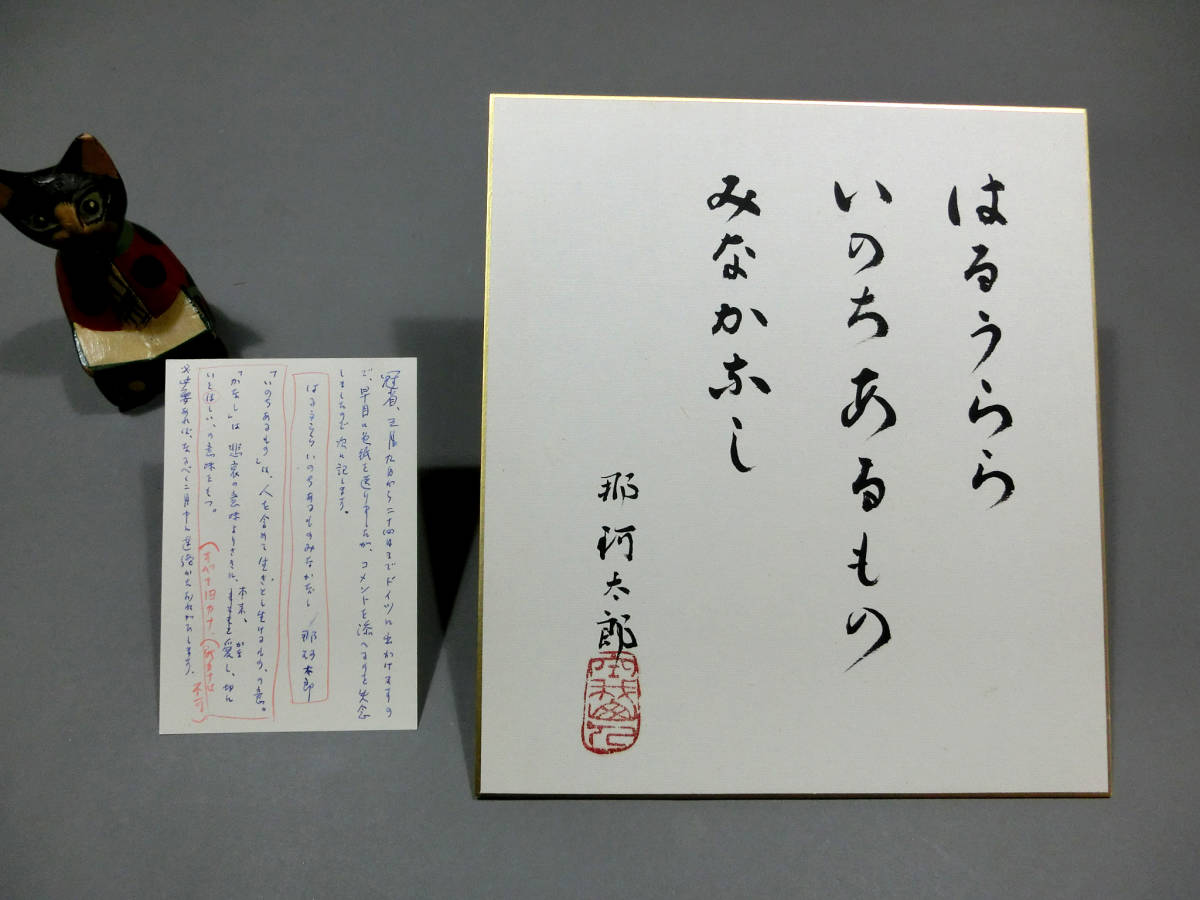 はるうらら
いのちあるもの
みなかなし
那珂太郎
冠省、三月九日から二十四日までドイツに出かけますの
で、早目に色紙を送りましたが、コメントを添へるのを失念
しましたので次に記します。
はるうららいのちあるものみなかなし 那珂太郎
「いのちあるもの」は、人を含めて生きとし生けるもの、の意。
「かなし」は悲哀の意味よりさきに、本来、愛し、切に
かな
いとほしい、の意味をもつ。
(すべて旧カナ、(新カナは
不可)
必要あれば、なるべく二月中に連絡おねがひします。